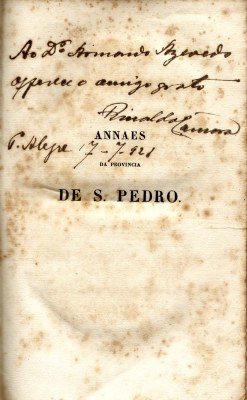 Ao Dr. Armando Azevedo
offerece o amigo grato
Rinaldo Camara
P. Alegre 7-7-921
ANNAES
DA PROVINCIA
DE S. PEDRO.